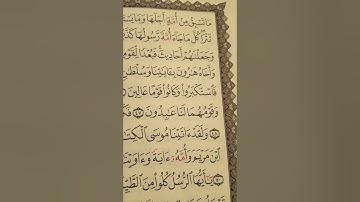 مَا تَسْبِقُ مِنْ أُمَّةٍ أَجَلَهَا وَمَا يَسْتَ
تَتْرَا كُلَّ مَا جَاءَ أُمَّةً رَّسُولُهَا كَذَّ
وَجَعَلْنَاهُمْ أَحَادِيثَ فَبُعْدًا لِّقَوْمٍ
وَأَخَاهُ هَارُونَ بِـَٔايَاتِنَا وَسُلْطَانٍ
فَاسْتَكْبَرُوا وَكَانُوا قَوْمًا عَالِينَ
وَقَوْمُهُمَا لَنَا عَابِدُونَ ٤٧ فَكَ
٤٨ وَلَقَدْ ءَاتَيْنَا مُوسَى الْكِتَا
ابْنَ مَرْيَمَ وَأُمَّهُ ءَايَةً وَءَاوَيْنَ
٥٠ يَا أَيُّهَا الرُّسُلُ كُلُوا مِنَ الطَّيِّ